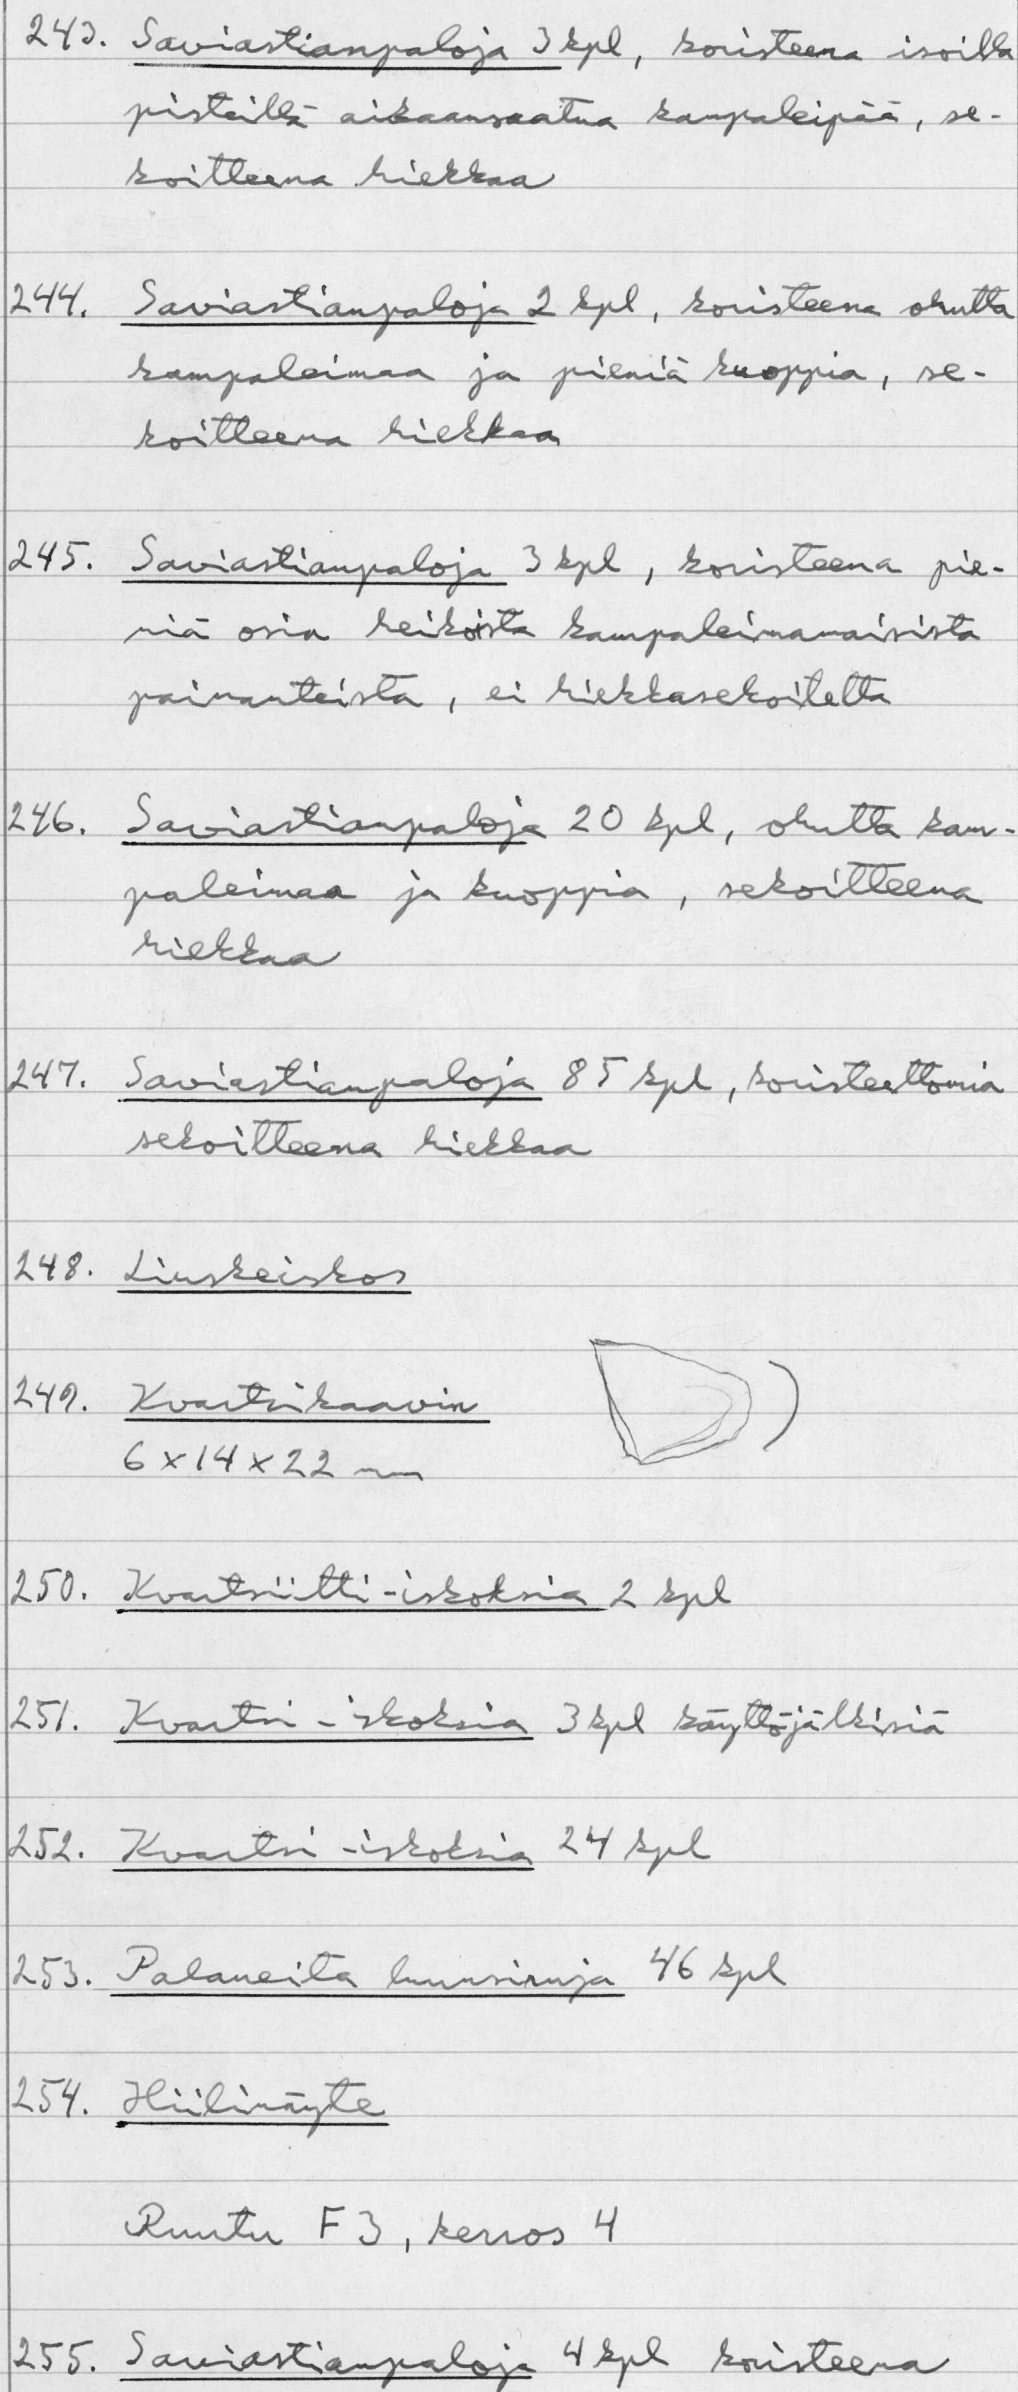 243. Saviastianpaloja 3 kpl, koristeena isoilla
pisteillä aikaansaatua kampaleipää, se-
koitteena hiekkaa
244. Saviastianpaloja 2 kpl, koristeena ohutta
kampaleimaa ja pieniä kuoppia, se-
koitteena hiekkaa
245. Saviastianpaloja 3 kpl, koristeena pie-
niä osia heikoista kampaleimamaisista
painanteista, ei hiekkasekoitetta
246. Saviastianpaloja 20 kpl, ohutta kam-
paleimaa ja kuoppia, sekoitteena
hiekkaa
247. Saviastianpaloja 85 kpl, koristeettomia
sekoitteena hiekkaa
248. Liuskeiskos
249. Kvartsikaavin
6 x 14 x 22 mm
250. Kvartsiitti-iskoksia 2 kpl
251. Kvartsi-iskoksia 3 kpl käyttöjälkisiä
252. Kvartsi-iskoksia 24 kpl
253. Palaneita luunsiruja 46 kpl
254. Hiilinäyte
Ruutu F3, kerros 4
255. Saviastianpaloja 4 kpl koristeena